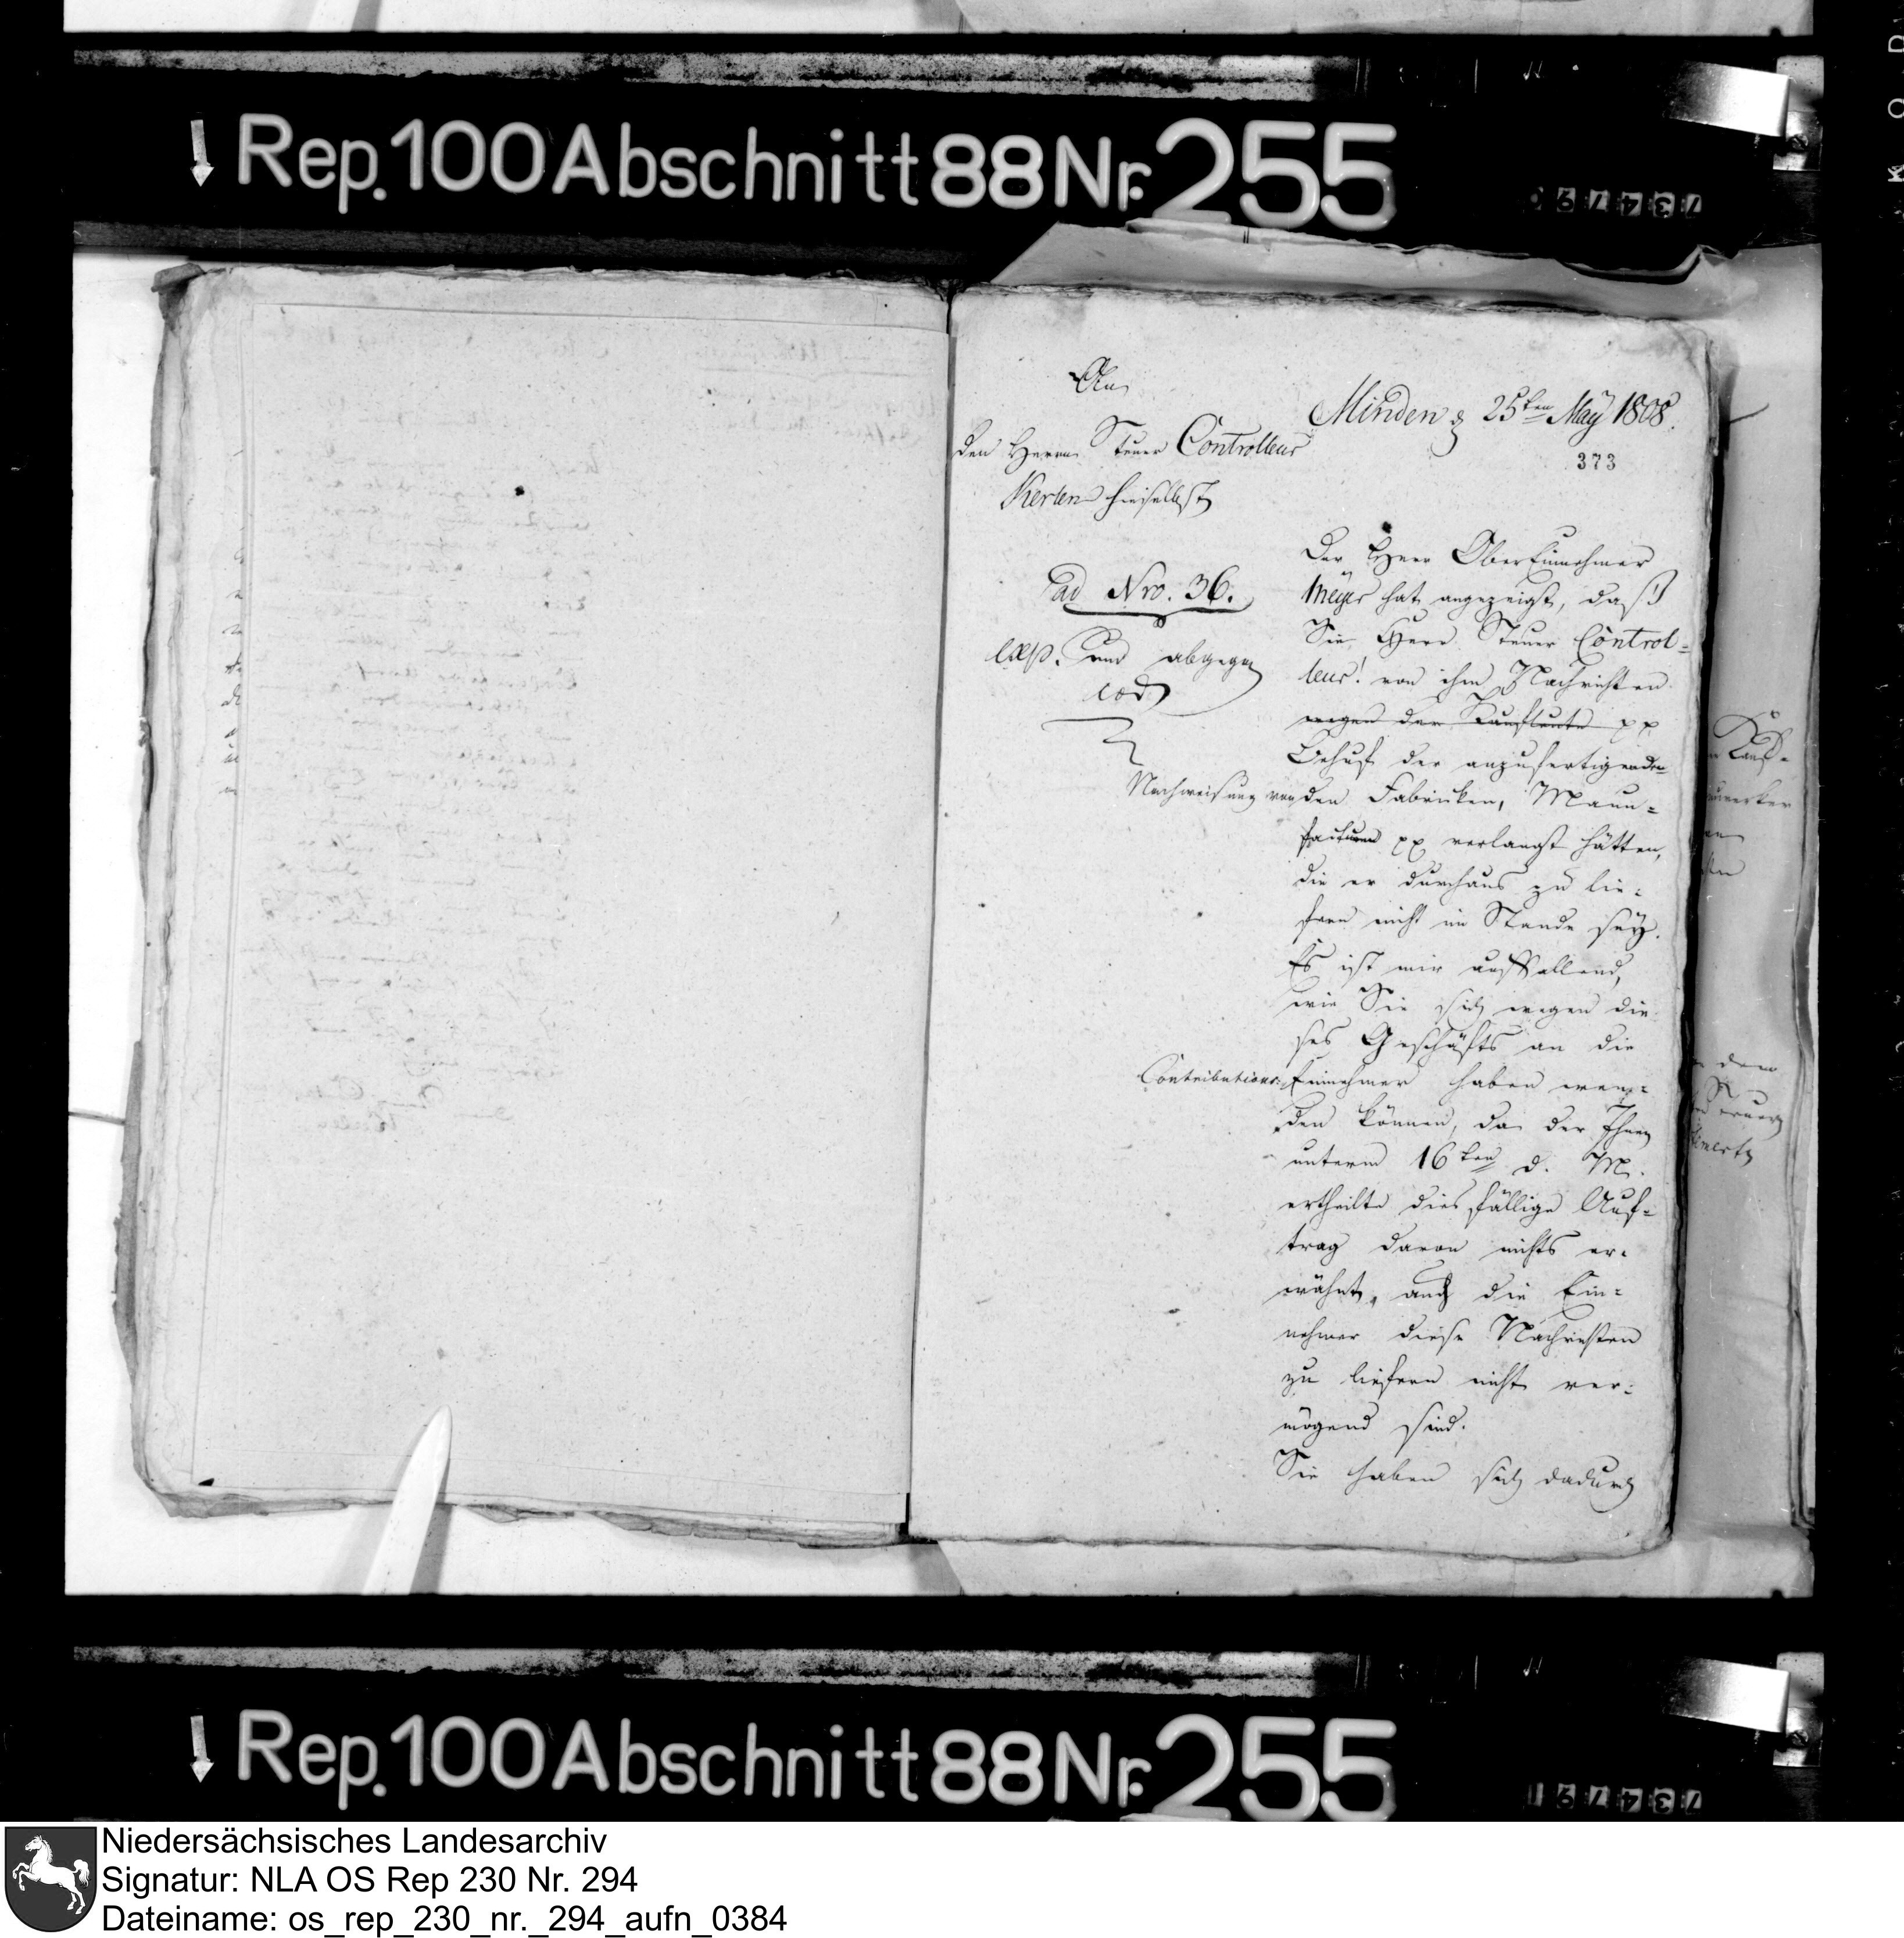 Rep. 100 Abschnitt 88 Nr. 255
Minden d 25ten May 1808.
373
An
den Herrn Steuer Controlleur
Kerlen hieselbst
ad Nro. 36.
exp. und abgegn
eod
Der Herr OberEinnehmer
Meyer hat angezeigt, daß
Sie Herr Steuer Control=
leur! von ihm Nachrichten
wegen der Kaufleute pp
Behuf der anzufertigenden
Nachweisung von den Fabriken, Manu=
facturen pp verlangt hätten,
die er durchaus zu lie=
fern nicht im Stande sey.
Es ist mir auffallend,
wie Sie sich wegen die
ses Geschäfts an die
Contributions= Einnehmer haben wen=
den können, da der Ihnen
unterm 16ten d. M.
ertheilte diesfällige Auf=
trag davon nichts er=
wähnt, auch die Ein=
nehmer diese Nachrichten
zu liefern nicht ver=
mögend sind.
Sie haben sich dadurch
Rep. 100 Abschnitt 88 Nr. 255
Niedersächsisches Landesarchiv
Signatur: NLA OS Rep 230 Nr. 294
Dateiname: os_rep_230_nr._294_aufn_0384